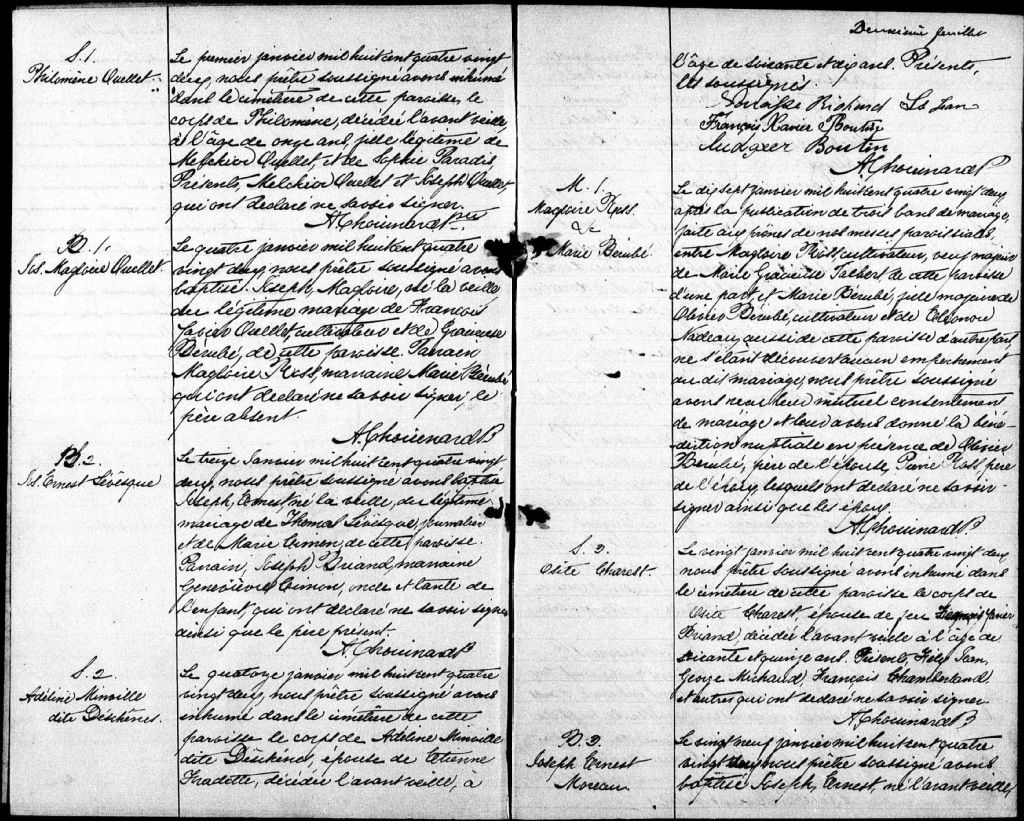 S. 1.
Philomène Ouellet
Le premier janvier mil huit cent quatre vingt
deux, nous prêtre soussigné avons inhumé
dans le cimetière de cette paroisse, le
corps de Philomène, décédée l'avant veille
à l'âge de onze ans, fille légitime de
Melchior Ouellet, et de Sophie Paradis.
Présents, Melchior Ouellet et Joseph Ouellet
qui ont déclaré ne savoir signer.
A. Chouinard Ptre
B. 1.
Jos. Magloire Ouellet.
Le quatre janvier mil huit cent quatre
vingt deux, nous prêtre soussigné avons
baptisé Joseph, Magloire, né la veille,
du légitime mariage de François
Xavier Ouellet, cultivateur et de Gracieuse
Bérubé, de cette paroisse. Parrain
Magloire Ross, marraine Marie Bérubé
qui ont déclaré ne savoir signer, le
père absent.
A. Chouinard P
B. 2.
Jos. Ernest Lévesque
Le treize Janvier mil huit cent quatre vingt
deux, nous prêtre soussigné avons baptisé
Joseph, Ernest, né la veille, du légitime
mariage de Thomas Lévesque, journalier
et de Marie Simon, de cette paroisse.
Parrain, Joseph Briand, marraine
Geneviève Simon, oncle et tante de
l'enfant, qui ont déclaré ne savoir signer
ainsi que le père présent.
A. Chouinard P
S. 2.
Adéline Minville
dite Déschênes.
Le quatorze janvier mil huit cent quatre
vingt deux, nous prêtre soussigné avons
inhumé dans le cimétière de cette
paroisse le corps de Adéline Minville
dite Déschênes, épouse de Etienne
Fradette, décédée l'avant veille, à
Deuxième feuillet
l'âge de soixante et dix ans. Présents,
les soussignés.
Richard
François Xavier Boutin
Boutin
A. Chouinard P
M. 1.
Magloire Ross.
&
Marie Bérubé
Le dix sept janvier mil huit cent quatre vingt deux,
après la publication de trois bans de mariage,
faite aux prônes de nos messes paroissiales
entre Magloire Ross, cultivateur, veuf majeur
de Marie Gracieuse Talbert, de cette paroisse
d'une part, et Marie Bérubé, fille majeure de
Olivier Bérubé, cultivateur et de Eléonore
Nadeau, aussi de cette paroisse d'autre part,
ne s'étant découvert aucun empêchement
au dit mariage, nous prêtre soussigné
avons reçu leur mutuel consentement
de mariage et leur avons donné la béné-
diction nuptiale en présence de Olivier
Bérubé, père de l'épouse, Pierre Ross père
de l'époux, lesquels ont déclaré ne savoir
signer ainsi que les époux.
A. Chouinard P.
S. 3.
Osite Charest.
Le vingt janvier mil huit cent quatre vingt deux,
nous prêtre soussigné avons inhumé dans
le cimetière de cette paroisse le corps de
Osite Charest, épouse de feu François Xavier
Briand, décédée l'avant veille à l'âge de
soixante et quinze ans. Présents, Félix Jean,
George Michaud, François Chamberland
et autres qui ont déclaré ne savoir signer
A. Chouinard P
B. 3.
Joseph Ernest
Moreau
Le vingt neuf janvier mil huit cent quatre
vingt deux nous prêtre soussigné avons
baptisé Joseph, Ernest, né l'avant veille,